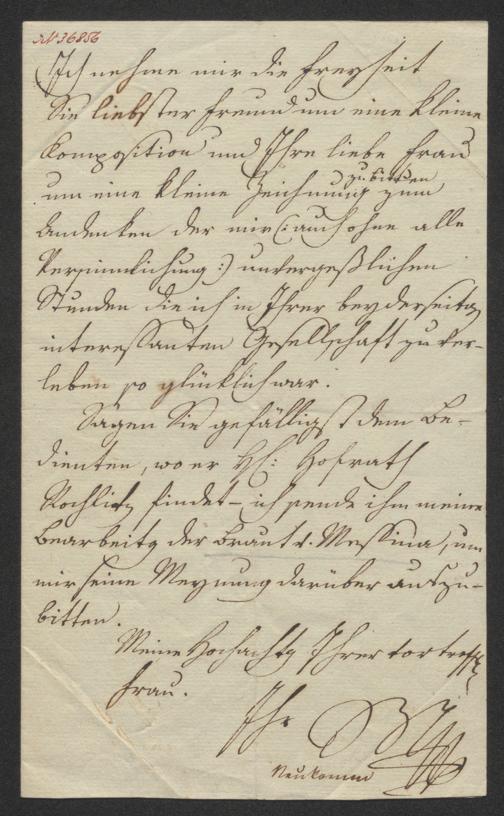 N 36856
Ich nehme mir die Freyheit
Sie liebster Freund um eine kleine
Komposition und Ihre liebe Frau
um eine kleine Zeichnung zu bitten zum
Andenken der mir (: auch ohne alle
Versinnlichung :) unvergeßlichen
Stunden die ich in Ihrer beyderseitg
interessanten Gesellschaft zu ver-
leben so glücklich war.
Sagen Sie gefälligst dem Be-
dienten, wo er H: Hofrath
Rochlitz findet – ich sende ihm meine
Bearbeitg der Braut v. Messina, um
mir seine Meynung darüber auszu-
bitten.
Meine Hochachtg Ihrer vortreffl
Frau.
Ihr
Neukomm